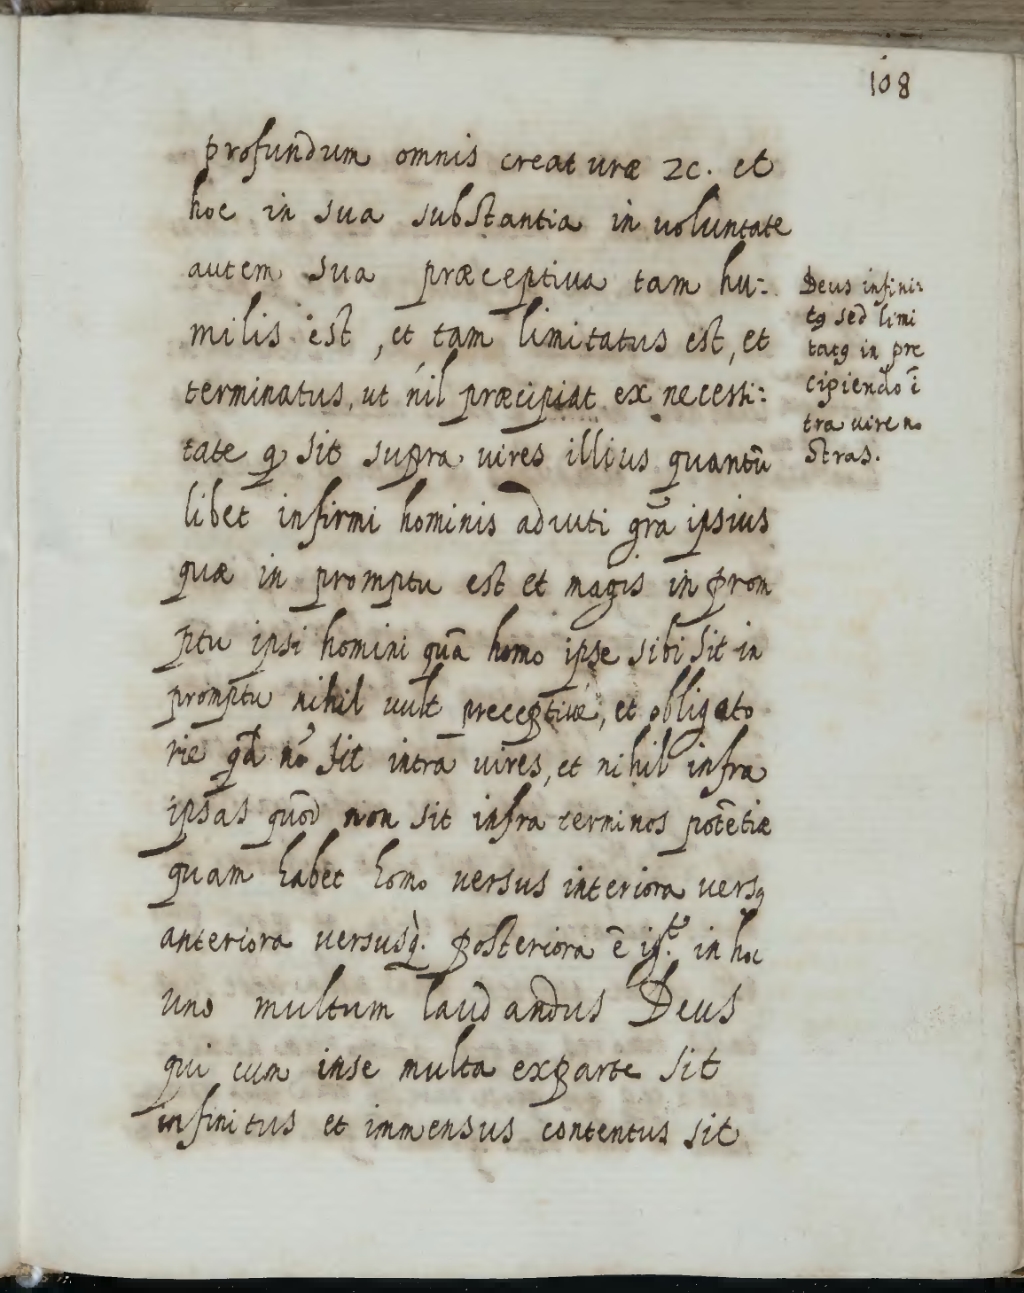 108
profundum omnis creaturæ 2c. et
hoc in sua substantia in voluntate
autem sua præceptiva tam hu=
milis est, et tam limitatus est, et
terminatus, ut nil præcipiat ex necessi=
tate q sit supra vires illius quantũ
libet infirmi hominis adiuti gr̃a ipsius
quæ in promptu est et magis in prom
ptu ipsi homini quã homo ipse sibi sit in
promptu nihil vult preceptivè, et obligato
rie qđ nõ sit intra vires, et nihil infra
ipsas quod̃ non sit infra terminos potẽtiæ
quam habet homo versus interiora versꝯ
anteriora versusq̀. posteriora ẽ ig.ᵗ in hoc
uno multum laudandus Deus
qui cum inse multa exparte sit
infinitus et immensus contentus sit
Deus infini=
tꝯ sed limi
tatꝯ in pre
cipiendo ĩ
tra vire no
stras.